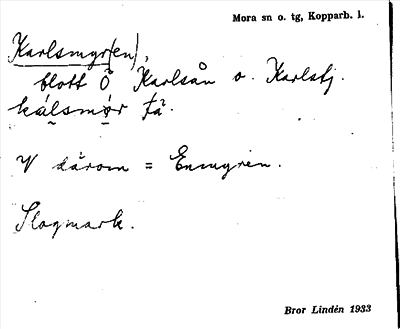 Mora sn o. tg, Kopparb. l.
Karlsmyr(en),
blott Ö Karlsån o. Karlsfj.
kálsmør fä.
V därom = Enmyren.
Slogmark.
Bror Lindén 1933